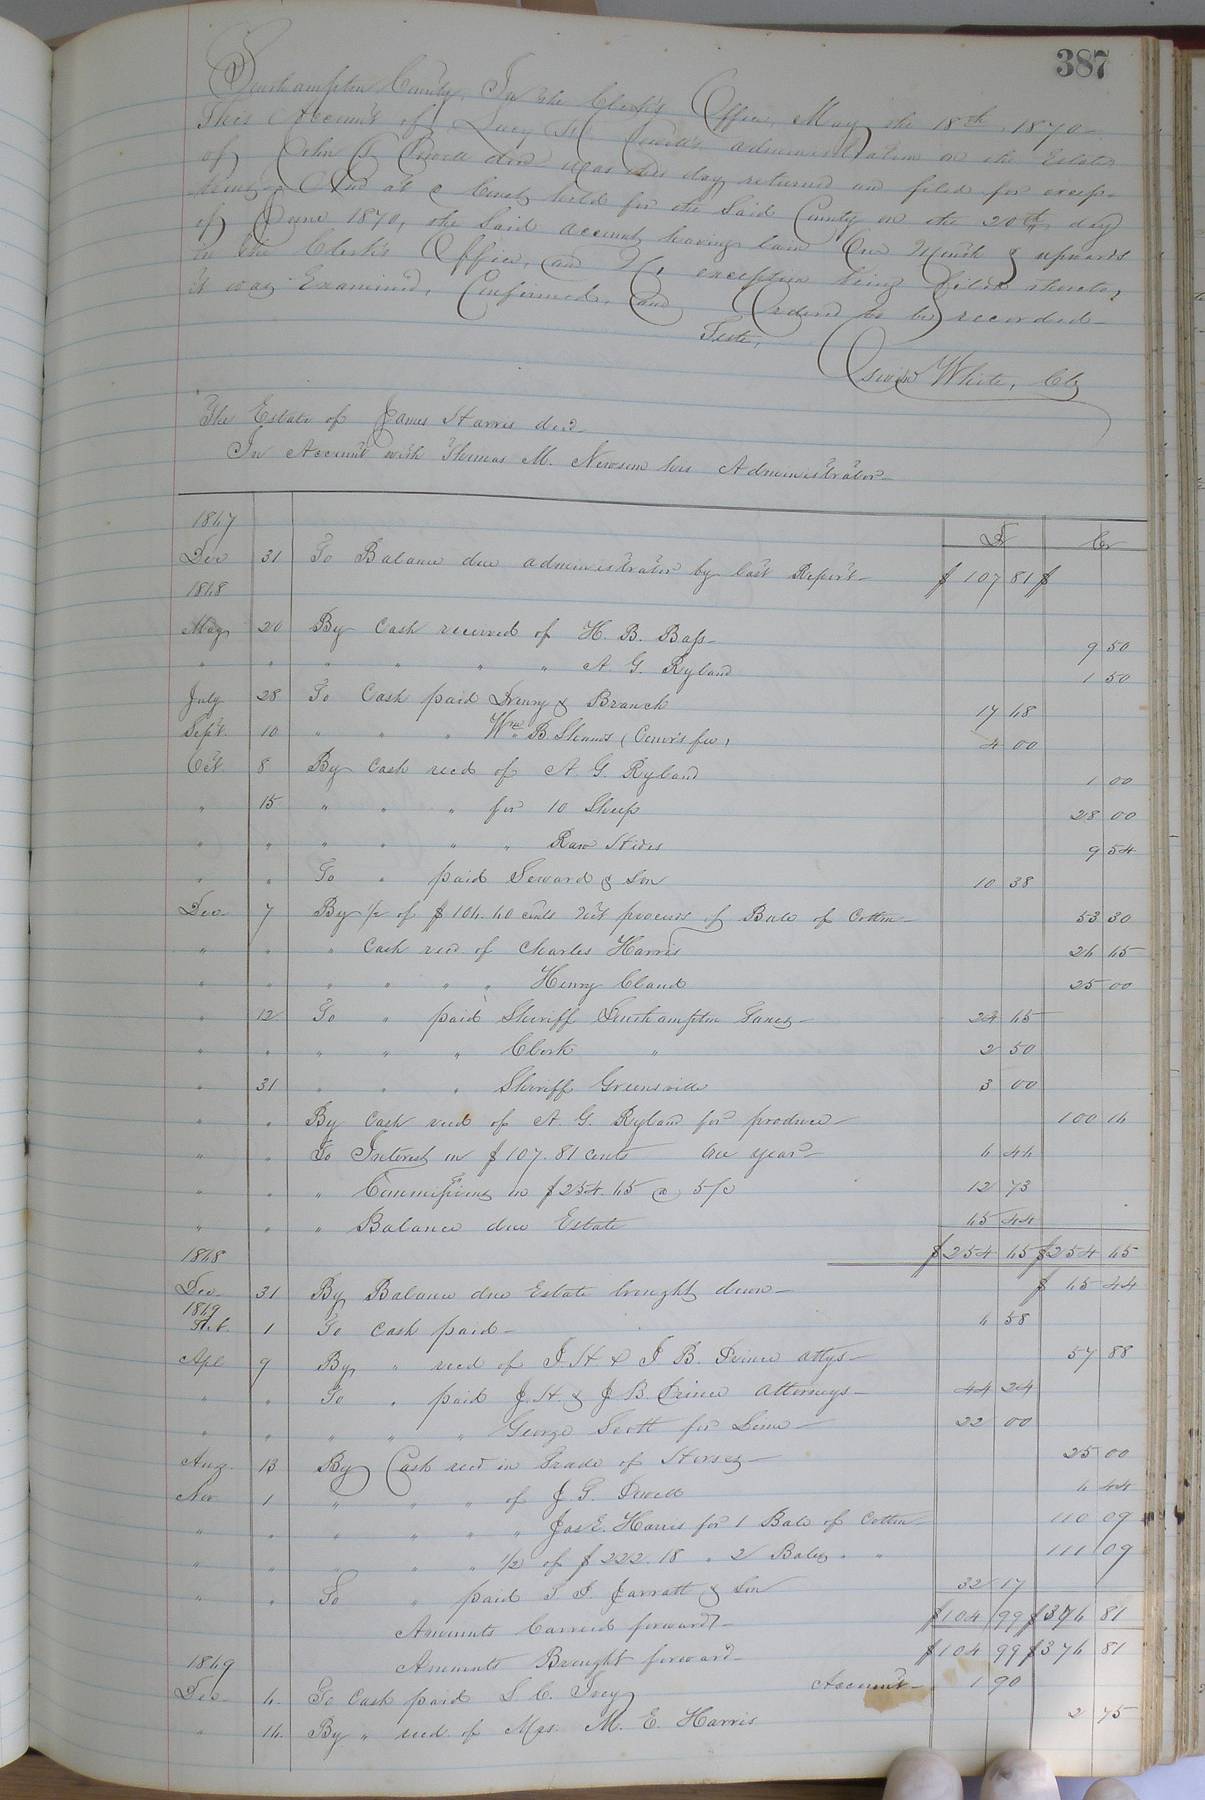 387
Southampton County, In the Clerk's Office, May the 18th, 1870
This Account of Lucy M Powell's administration on the Estate
of John J Powell decd was this day returned and filed for excep-
tions, And at a Court held for the Said County on the 20th day
of June 1870, the Said account having lain One Month & upwards
in the Clerk's Office, and No exception being filed thereto,
it was Examined, Confirmed, and Ordered to be recorded
Teste,
White, Clk
The Estate of James Harris decd
In Account with Thomas M. Newsom his Administrator
1867 Dr Cr
Dec 31 To Balance due administrator by last Report $107 81 $
1868
May 20 By Cash received of H. B. Bass 9 50
" " " " " " A G. Ryland 1 50
July 28 To Cash paid Drewry & Branch 17 68
Sept. 10 " " " Wm B. Shands (Comr's fee) 4 00
Oct 8 By Cash recd of A. G. Ryland 1 00
" 15 " " " for 10 Sheep 28 00
" " " " " " Raw Hides 9 54
" " To " paid Seward & Son 10 38
Dec 7 By 1/2 of $106.60 cents net proceeds of Bale of Cotton 53 30
" " " Cash recd of Charles Harris 26 65
" " " " " " Henry Claud 25 00
" 12 To " paid Sheriff Southampton Taxes 24 65
" " " " " Clerk " 2 50
" 31 " " " Sheriff Greensville 3 00
" " By Cash recd of A. G. Ryland for produce 100 16
" " To Interest on $107.81 cents One year 6 46
" " " Commissions on $254.65 @ 5/c 12 73
" " " Balance due Estate 65 44
$254 65 $254 65
1868
Dec 31 By Balance due Estate brought down $65 44
1869
Feb. 1 To Cash paid 6 58
Apl 9 By " recd of J. H & J B. Prince attys 57 88
" " To " paid J. H & J B. Prince Attorneys 44 24
" " " " " George Scott for Lime 22 00
Aug. 13 By Cash recd in Trade of Horses 25 00
Nov 1 " " " of J G. Powell 6 44
" " " " " " Jas E. Harris for 1 Bale of Cotton 110 09
" " " " " 1/2 of $222.18 " 2 Bales " " 111 09
" " To " paid Jarratt & Son 32 17
Amounts Carried forward $104 99 $376 81
1869 Amounts Brought forward $104 99 $376 81
Dec 6. To Cash paid S. C. Ivey Account 1 90
" 16. By " recd of Mrs. M. E. Harris 2 75